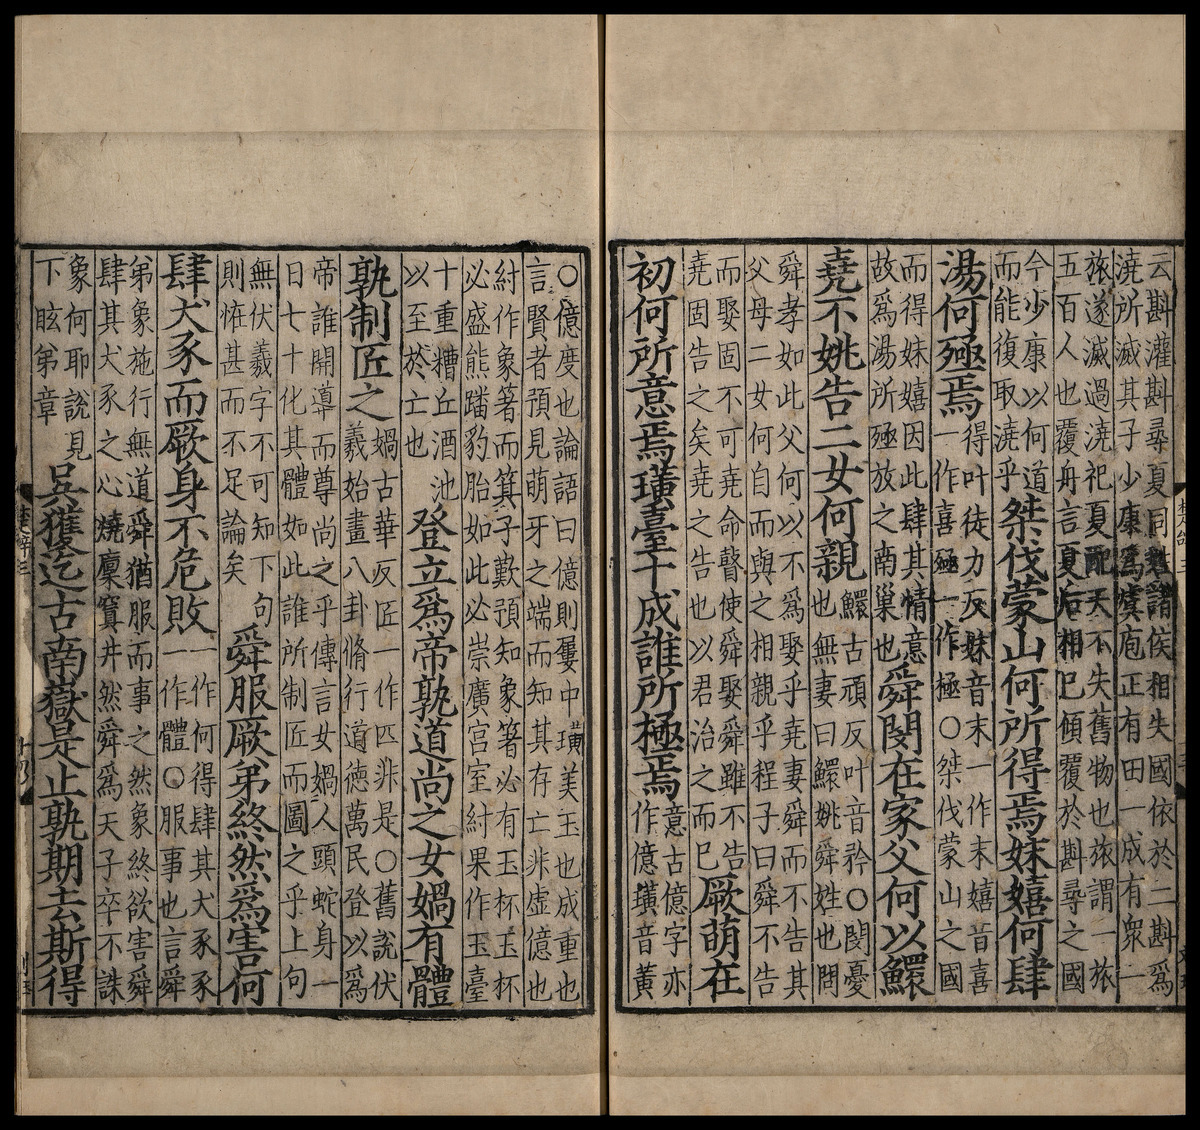 云斟灌斟尋夏同姓諸侯相失國依於二斟爲
澆所滅其子少康爲虞庖正有田一成有衆一
旅遂滅過澆祀夏配天不失舊物也旅謂一旅
五百人也覆舟言夏后相已傾覆於斟尋之國
今少康以何道
而能復取澆乎
桀伐蒙山何所得焉妺嬉何肆
湯何殛焉
得叶徒力反妺音末一作末嬉音喜
一作喜殛一作極○桀伐蒙山之國
而得妺嬉因此肆其情意
故爲湯所殛放之南巢也
舜閔在家父何以鱞
堯不姚告二女何親
鱞古頑反叶音矜○閔憂
也無妻曰鱞姚舜姓也問
舜孝如此父何以不爲娶乎堯妻舜而不告其
父母二女何自而與之相親乎程子曰舜不告
而娶固不可堯命瞽使舜娶舜雖不告
堯固告之矣堯之告也以君治之而已
厥萌在
初何所意焉璜臺十成誰所極焉
意古億字亦
作億璜音黃
○億度也論語曰億則屢中璜美玉也成重也
言賢者預見萌牙之端而知其存亡非虛億也
紂作象箸而箕子歎預知象箸必有玉杯玉杯
必盛熊蹯豹胎如此必崇廣宮室紂果作玉臺
十重糟丘酒池
以至於亡也
登立爲帝孰道尚之女媧有體
孰制匠之
媧古華反匠一作匹非是○舊說伏
羲始畫八卦脩行道德萬民登以爲
帝誰開導而尊尚之乎傳言女媧人頭蛇身一
日七十化其體如此誰所制匠而圖之乎上句
無伏羲字不可知下句
則恠甚而不足論矣
舜服厥弟終然爲害何
肆犬豕而厥身不危敗
一作何得肆其犬豕豕
一作體○服事也言舜
弟象施行無道舜猶服而事之然象終欲害舜
肆其犬豕之心燒廩窴井然舜爲天子卒不誅
象何耶說見
下眩弟章
吳獲迄古南嶽是止孰期去斯得